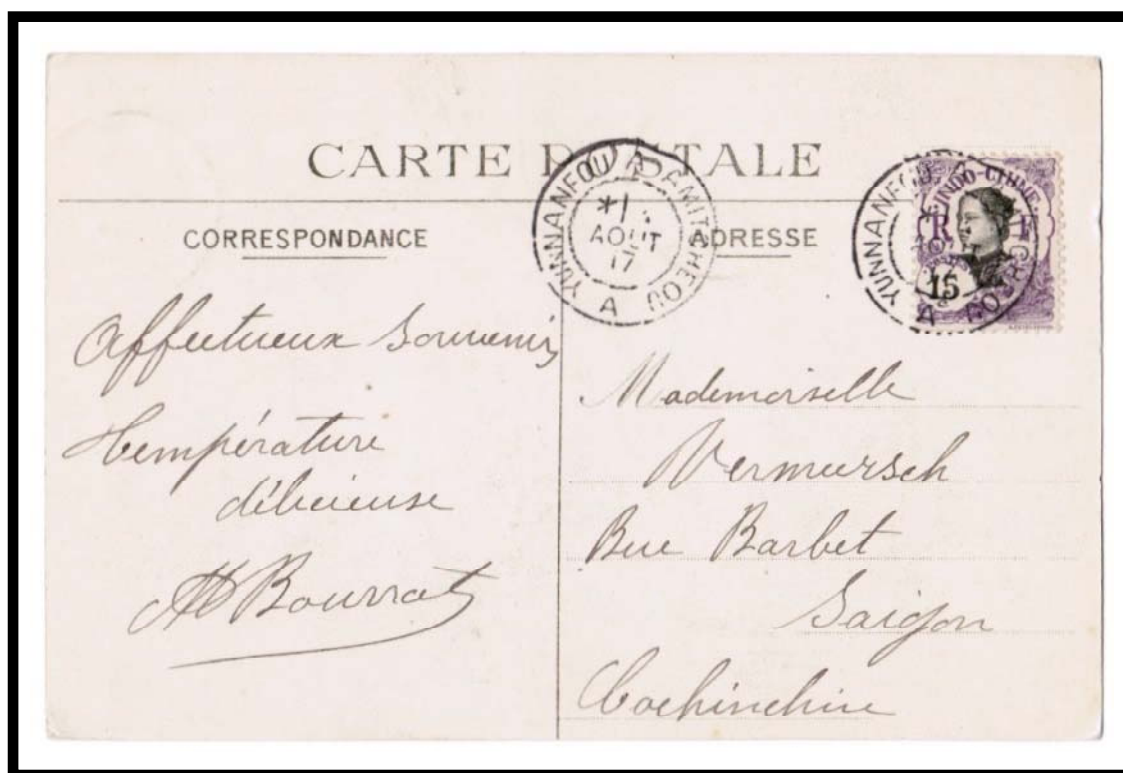 CARTE POSTALE
CORRESPONDANCE
ADRESSE
YUNNANFOU A AMITCHEOU
*1
AOUT
17
A
YUNNANFOU A
AOUT
17
A
INDO-CHINE
R F
15
Affectueux Souvenirs
Température
délicieuse
Bourrat
Mademoiselle
Vermeersch
Rue Barbet
Saigon
Cochinchine